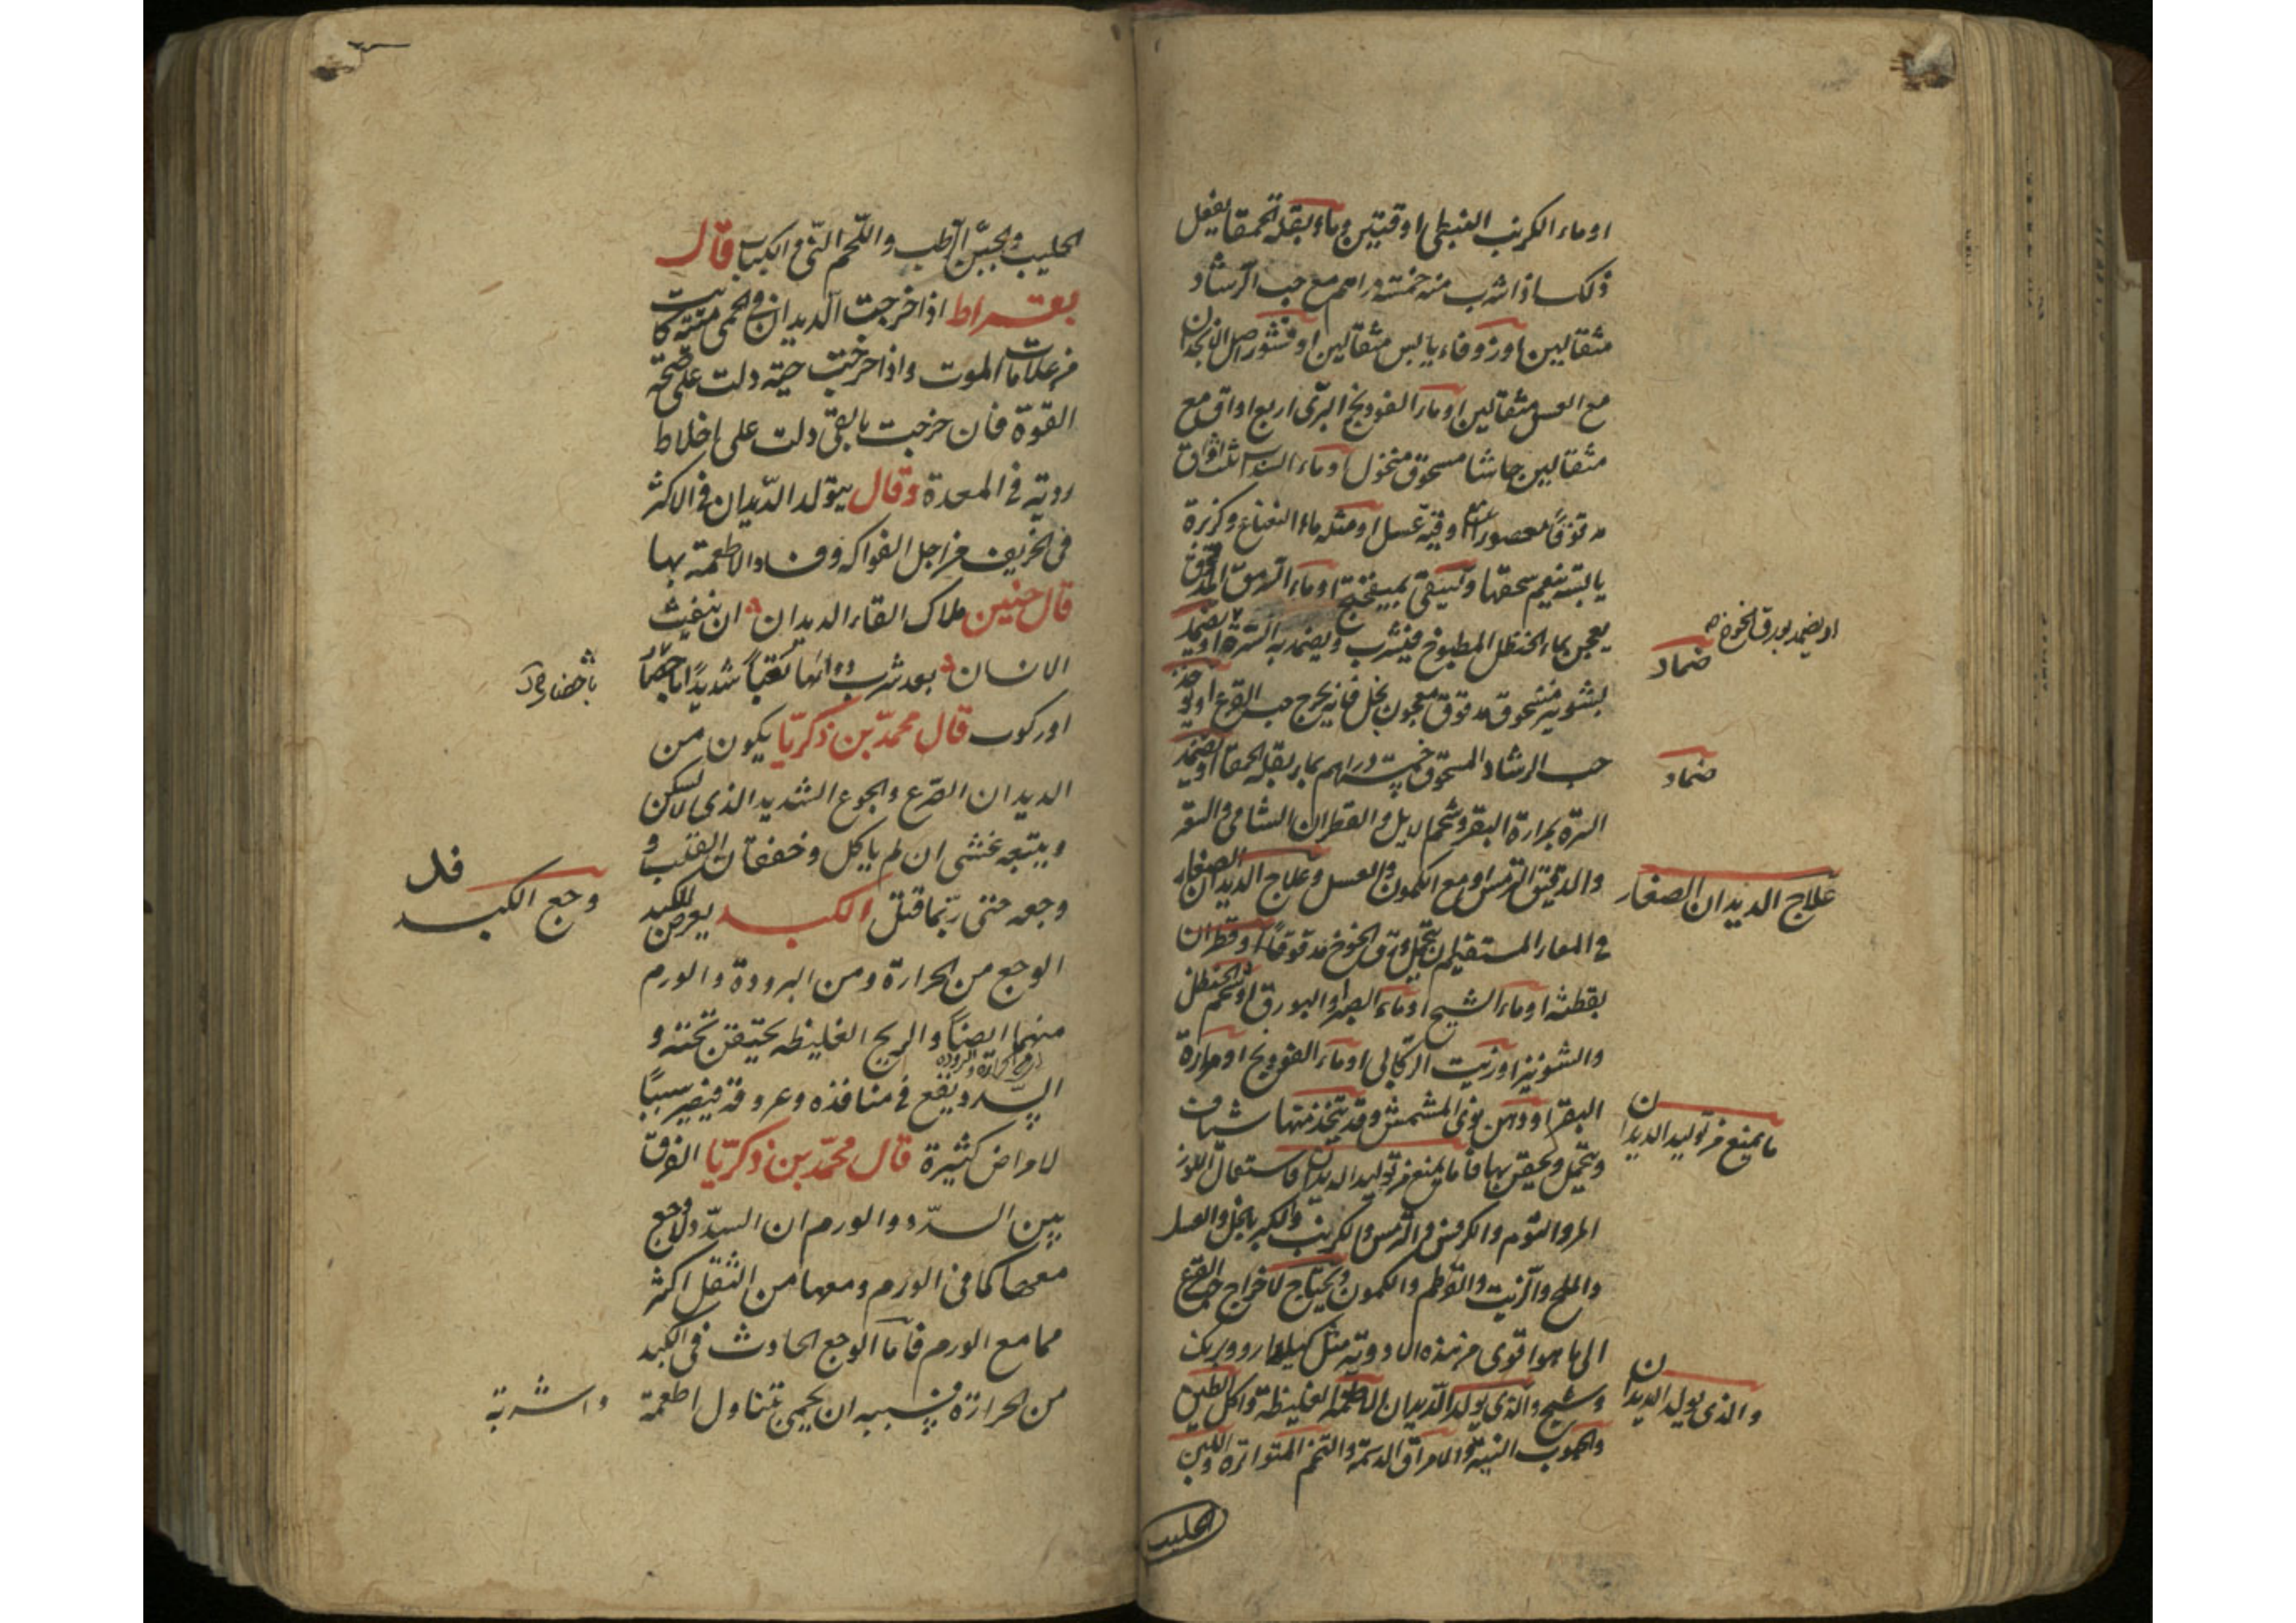 او ماء الكرنب النبطى اوقيتين وماء بقلة الحمقا يفعل
ذلك اذا شرب منه خمسة دراهم مع حب الرشاد
مثقالين او زوفاء يابس مثقالين او قشور اصل الانجدان
مع العسل مثقالين او ماء الفودنج البرى اربع اواق مع
مثقالين حاشا مسحوق منخول او ماء السداب ثلث اواق
مدقوقا معصورا مع اوقية عسل او مثله ماء النعناع وكزبرة
يابسة ينعم سحقها ويسقى بميبختج او ماء الترمس المدقوق
يعجن بماء الحنظل المطبوخ فيشرب ويضمد به السرة او يضمد
او يضمد بورق الخوخ صح
ضماد
بشونيز مسحوق مدقوق معجون بخل فانه يخرج حب القرع او يوخذ
حب الرشاد المسحوق خمسة دراهم بماء بقلة الحمقا او يضمد
ضماد
السرة بمرارة البقر وشحم الايل والقطران الشامى والسقر
والدقيق الترمس او مع الكمون والعسل وعلاج الديدان الصغار
علاج الديدان الصغار
فى المعاء المستقيم ان يتحمل ورق الخوخ مدقوقا او قطران
بقطنة او ماء الشيح او ماء الصبر والبورق او شحم الحنظل
والشونيز او زيت الركابى او ماء الفودنج او مرارة
البقر او دهن نوى المشمش وقد يتخذ منها شياف
ما يمنع من توليد الديدان
ويتحمل ويحقن بها فاما يمنع من توليد الديدان فاستعمال اللوز
المر والثوم والكرفس والترمس والكرنب والكبر بالخل والعسل
والملح والزيت والقرطم والكمون ويحتاج لاخراج حب القرع
الى ما هو اقوى من هذه الادوية مثل كهيلدارو وبرنك
وشيح والذى يولد الديدان الاطعمة الغليظة واكل الطين
والذى يولد الديدان
والحبوب النية والامراق الدسمة والتخم المتواترة واللبن
الحليب
الحليب والجبن الرطب واللحم النى والكباب قال
بقراط اذا خرجت الديدان فى الحمى ميتة كانت
من علامات الموت واذا خرجت حية دلت على صحة
القوة فان خرجت بالقى دلت على اخلاط
ردية فى المعدة وقال يتولد الديدان فى الاكثر
فى الخريف من اجل الفواكه وفساد الاطعمة بها
قال حنين ملاك القاء الديدان ان ينفث
الانسان بعد شرب دوائها تعبا شديدا اما
اوركوب قال محمد بن زكريا يكون من
الديدان الصرع والجوع الشديد الذى لا يسكن
ويتبعه غشى ان لم ياكل وخفقان القلب و
وجعه حتى ربما قتل الكبد يعرض للكبد
وجع الكبد
الوجع من الحرارة ومن البرودة والورم
منهما ايضا والريح الغليظه يحتقن تحته و
السدد يقع فى منافذه وعروقه فيصير سببا
لامراض كثيرة قال محمد بن زكريا الفرق
بين السدد والورم ان السدد لا وجع
معها كما فى الورم ومعها من الثقل اكثر
مما مع الورم فاما الوجع الحادث فى الكبد
من الحرارة فسببه ان يحمى بتناول اطعمة
واشربة